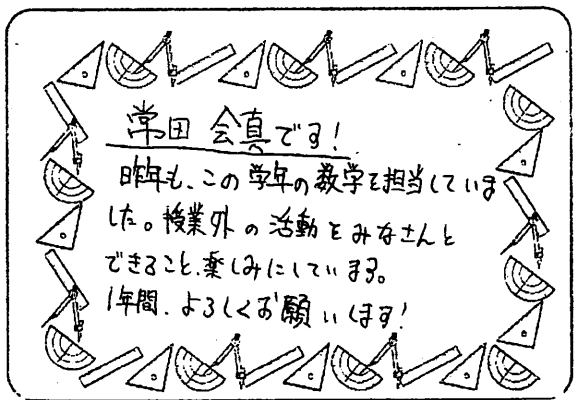 常田 会真です!
昨年も、この学年の数学を担当していま
した。授業外の活動をみなさんと
できること、楽しみにしています。
1年間、よろしくお願いします!